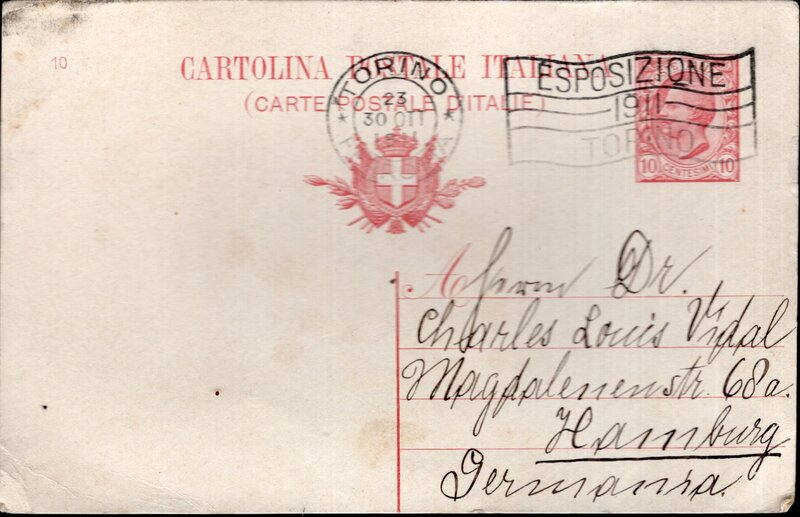 10
CARTOLINA POSTALE ITALIANA
(CARTE POSTALE D'ITALIE)
TORINO
23
30 OTT
1911
ESPOSIZIONE
1911
TORINO
10 CENTESIMI 10
A Herrn Dr.
Charles Louis Vidal
Magdalenenstr. 68a.
Hamburg
Germania.